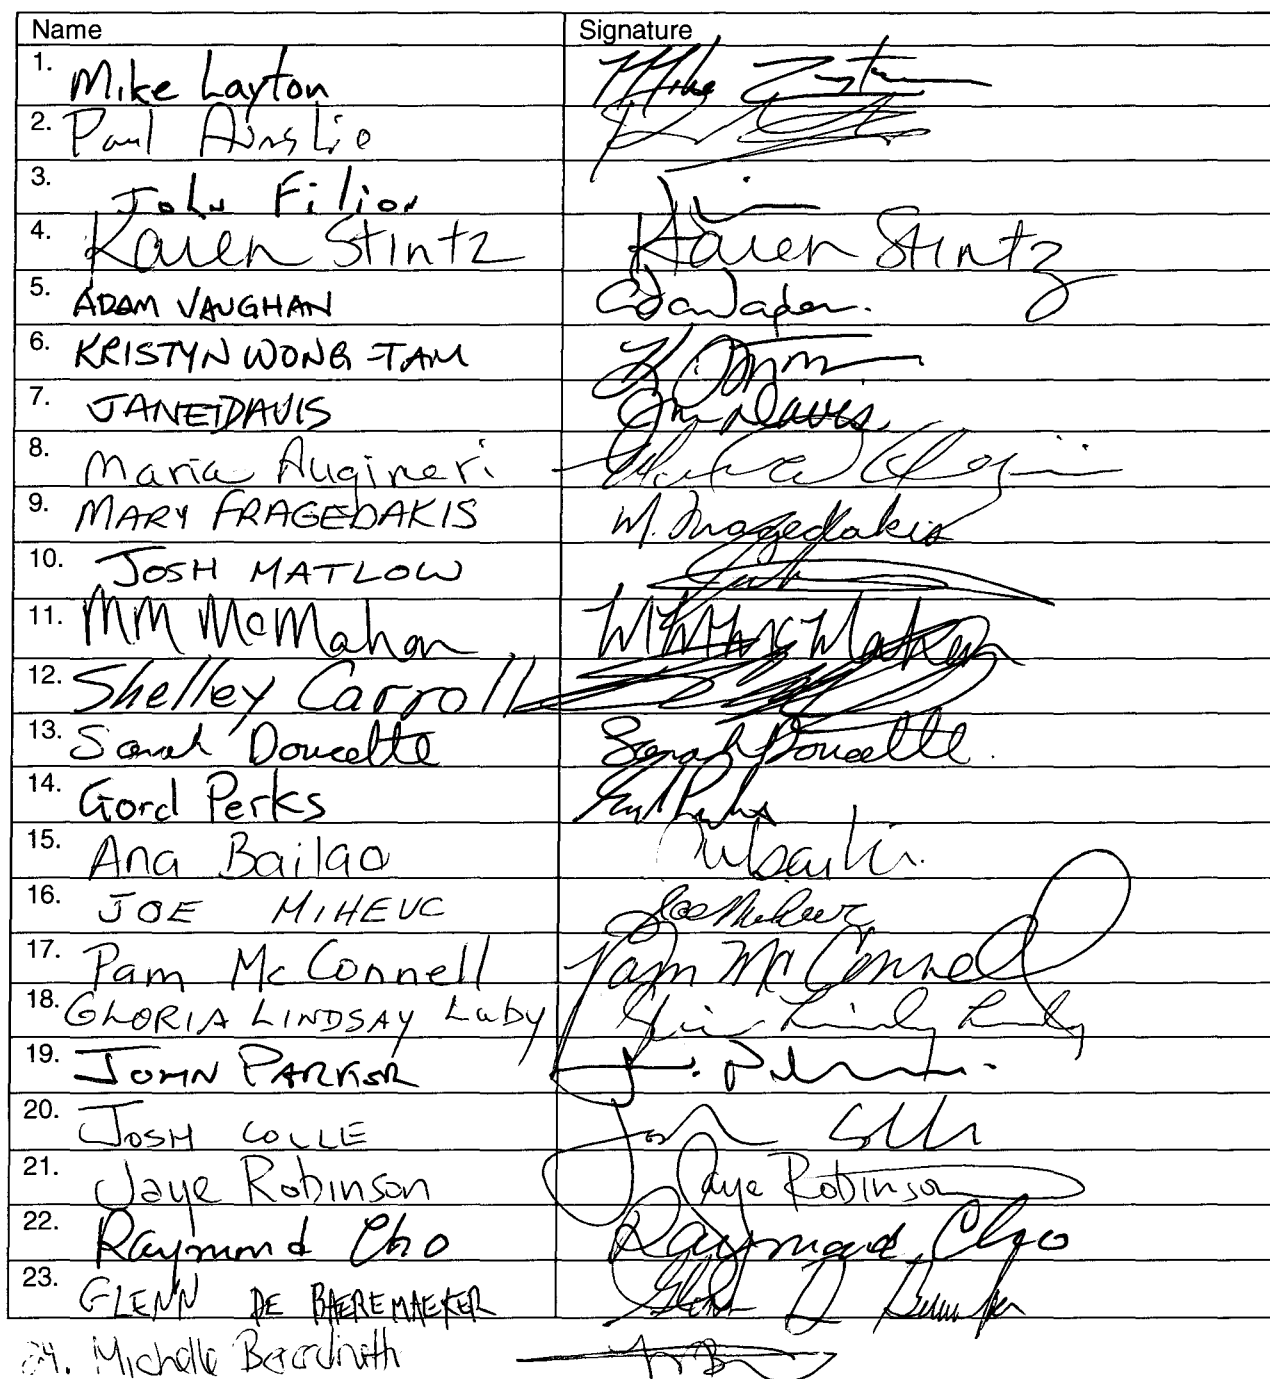 Name Signature
1. Mike Layton Mike Layton
2. Paul Ainslie
3. John Filion
4. Karen Stintz Karen Stintz
5. ADAM VAUGHAN
6. KRISTYN WONG-TAM
7. JANET DAVIS Davis
8. Maria Augimeri
9. MARY FRAGEDAKIS M. Fragedakis
10. JOSH MATLOW
11. MM McMahon MM McMahon
12. Shelley Carroll
13. Sarah Doucette Sarah Doucette
14. Gord Perks
15. Ana Bailao
16. JOE MIHEVC Joe Mihevc
17. Pam McConnell Pam McConnell
18. GLORIA LINDSAY Luby
19. JOHN PARKER
20. JOSH COLLE
21. Jaye Robinson Jaye Robinson
22. Raymond Cho Raymond Cho
23. GLENN DE BAEREMAEKER
24. Michelle